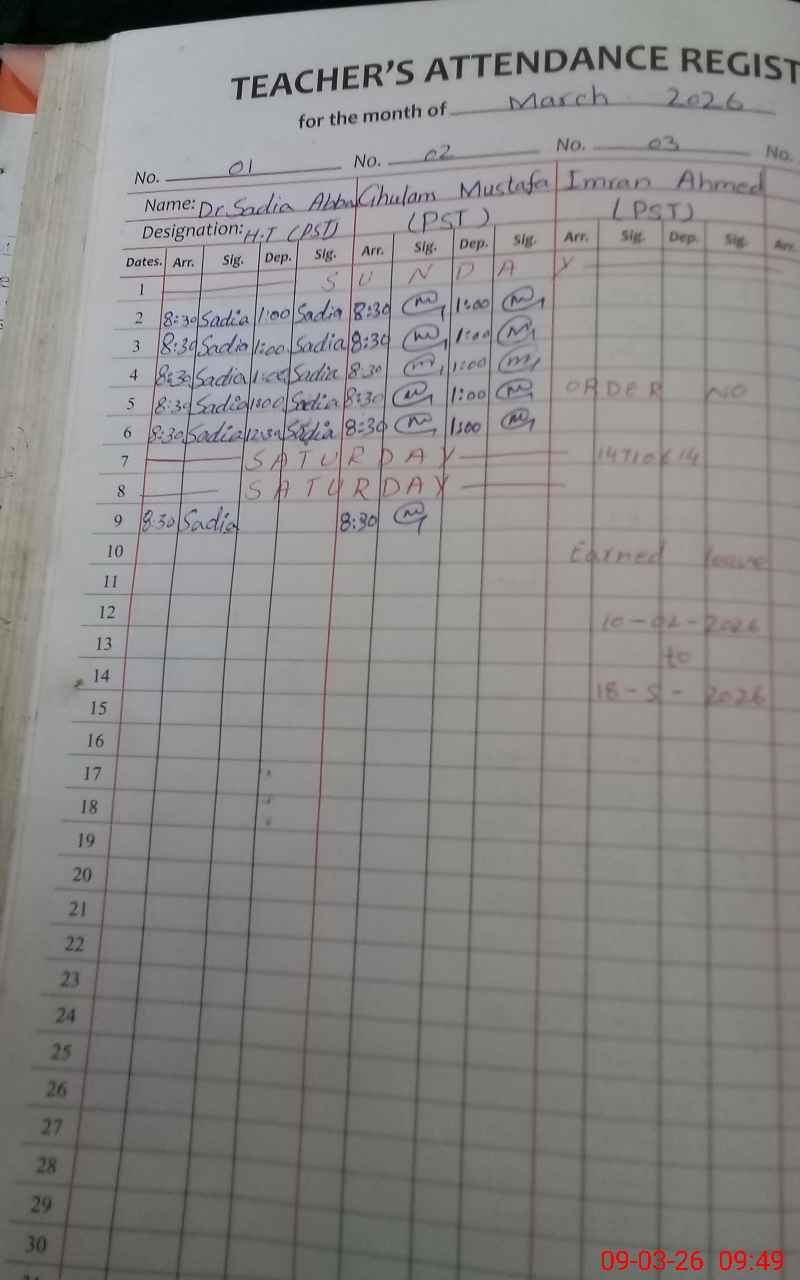 TEACHER'S ATTENDANCE REGIST
for the month of March 2026
No. 01 No. 02 No. 03 No.
Name: Dr. Sadia Abba Ghulam Mustafa Imran Ahmed
Designation: H.T (PST) (PST) (PST)
Dates. Arr. Sig. Dep. Sig. Arr. Sig. Dep. Sig. Arr. Sig. Dep. Sig. Arr.
1 SUNDAY
2 8:30 Sadia 1:00 Sadia 8:30 1:00
3 8:30 Sadia 1:00 Sadia 8:30 1:00
4 8:30 Sadia 1:00 Sadia 8:30 1:00
5 8:30 Sadia 1:00 Sadia 8:30 1:00 ORDER NO
6 8:30 Sadia 12:30 Sadia 8:30 1:00
7 SATURDAY
8 SATURDAY
9 8:30 Sadia 8:30
10 Earned leave
11
12 10-02-2026
13 to
14 18-5-2026
15
16
17
18
19
20
21
22
23
24
25
26
27
28
29
30
09-03-26 09:49